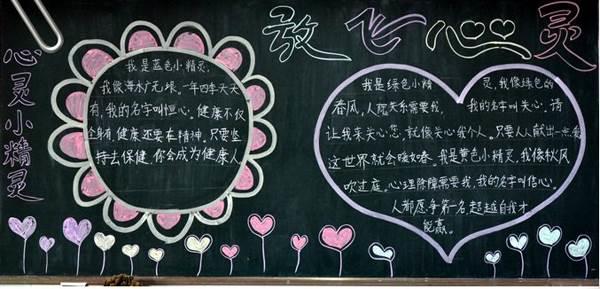 放飞心灵
心灵小精灵
我是蓝色小精灵,
我像海水广无垠。一年四年天天
有,我的名字叫恒心。健康不仅
全身有,健康还要在精神。只要坚
持去保健,你会成为健康人
我是绿色小精灵,我像绿色的
春风,人际关系需要我,我的名字叫关心,请
让我来关心您,就像关心我个人。只要人人献出一点爱
这世界就会暖如春。我是黄色小精灵,我像秋风
吹过庭。心理障碍需要我,我的名字叫信心。
人都愿争第一名,超越自我才
能赢。